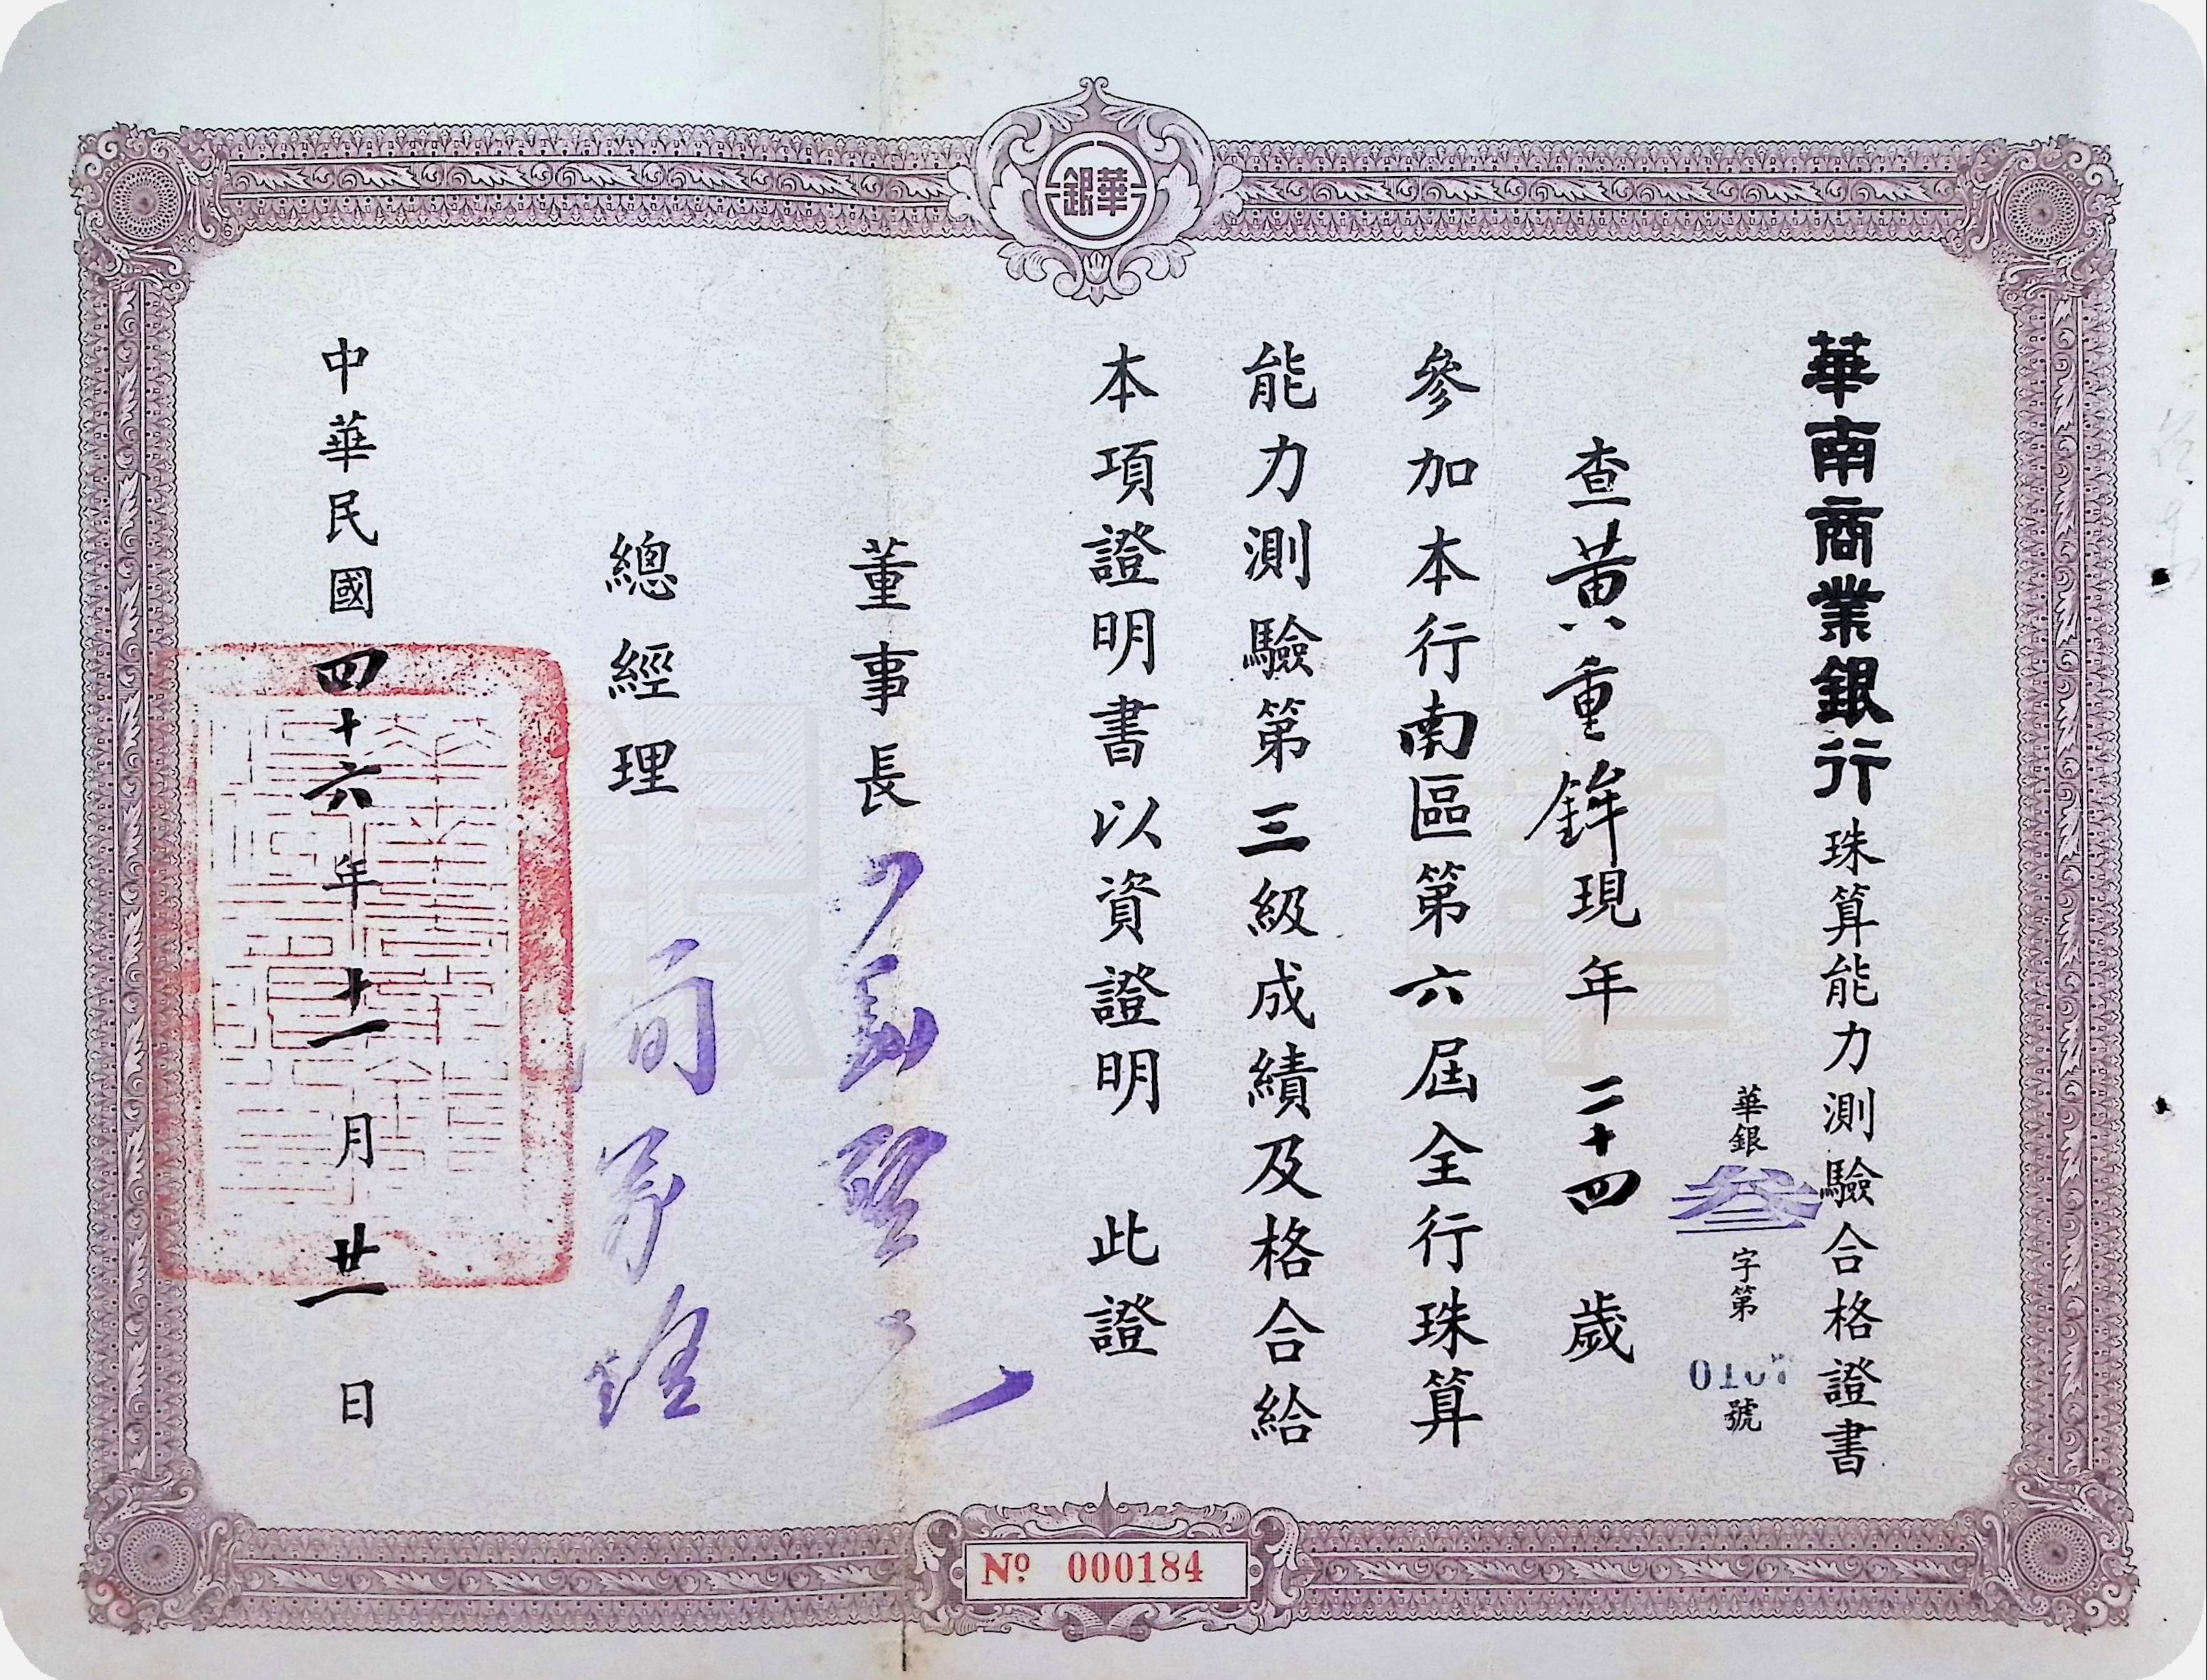 華銀
華南商業銀行珠算能力測驗合格證書
華銀叁字第0107號
查黃重鉾現年二十四歲
參加本行南區第六屆全行珠算
能力測驗第三級成績及格合給
本項證明書以資證明 此證
董事長
總經理
中華民國四十六年十一月廿一日
Nº 000184